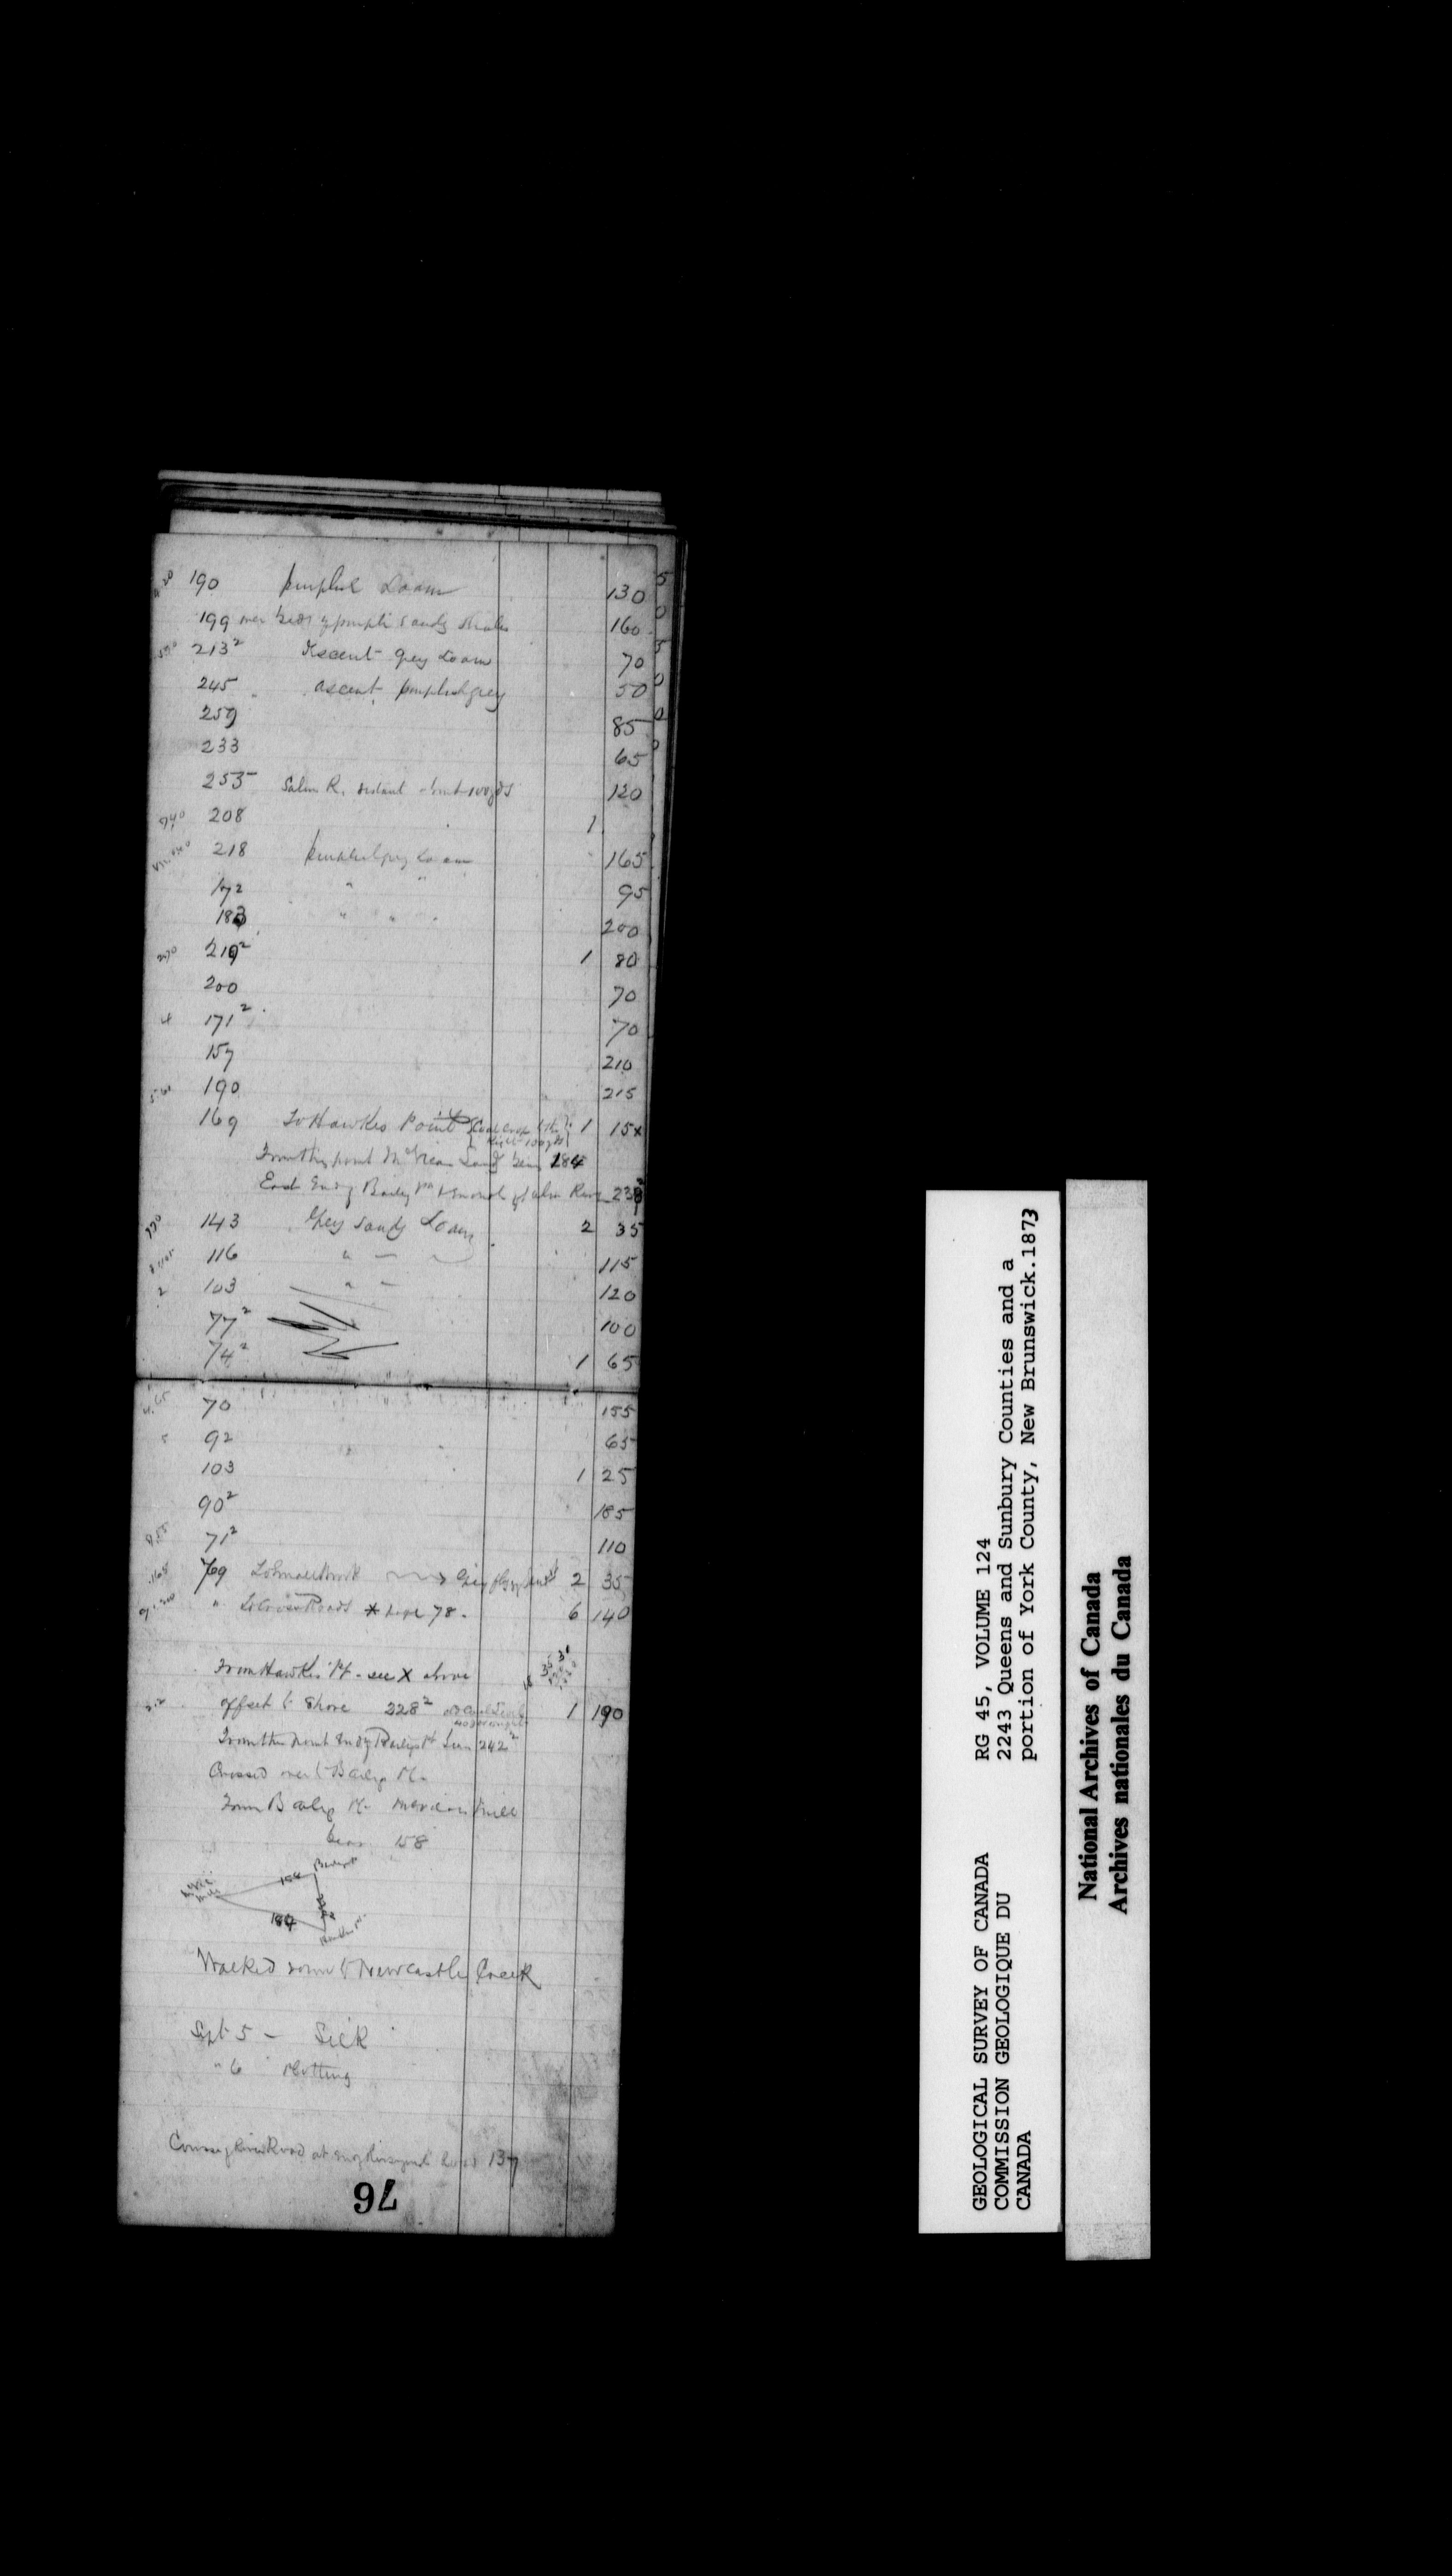 190 purplish Loam 130
199 over beds of purple sandy shales 160
213² Descent grey Loam 70
245 ascent purplish grey 50
259 85
233 65
255 Salmon R. distant about 100 yds 120
208 1
218 purplish grey Loam 165
172 " " 95
183 " " 200
219² 1 80
200 70
171² 70
157 210
190 215
169 To Hawkes Point 1 15x
From this point Land bears 184
East End of Bailey Pt mouth of Salmon River
143 Grey sandy Loam 2 35
116 " 115
103 " 120
77² 100
74² 1 65
70 155
92 65
103 1 25
90² 185
71² 110
769 To Small Brook 2 35
" To Cross Roads * page 78. 6 140
From Hawkes Pt - see X above
offset to Shore 228² 1 190
From this point End of Baileys Pt bears 242²
Crossed over to Baileys Pt.
From Baileys Pt. mill
bears 158
184
Walked down to Newcastle Creek
Sept 5 - Sick
" 6 Plotting
Course of River Road at 137
76
GEOLOGICAL SURVEY OF CANADA
COMMISSION GEOLOGIQUE DU
CANADA
RG 45, VOLUME 124
2243 Queens and Sunbury Counties and a
portion of York County, New Brunswick.1873
National Archives of Canada
Archives nationales du Canada